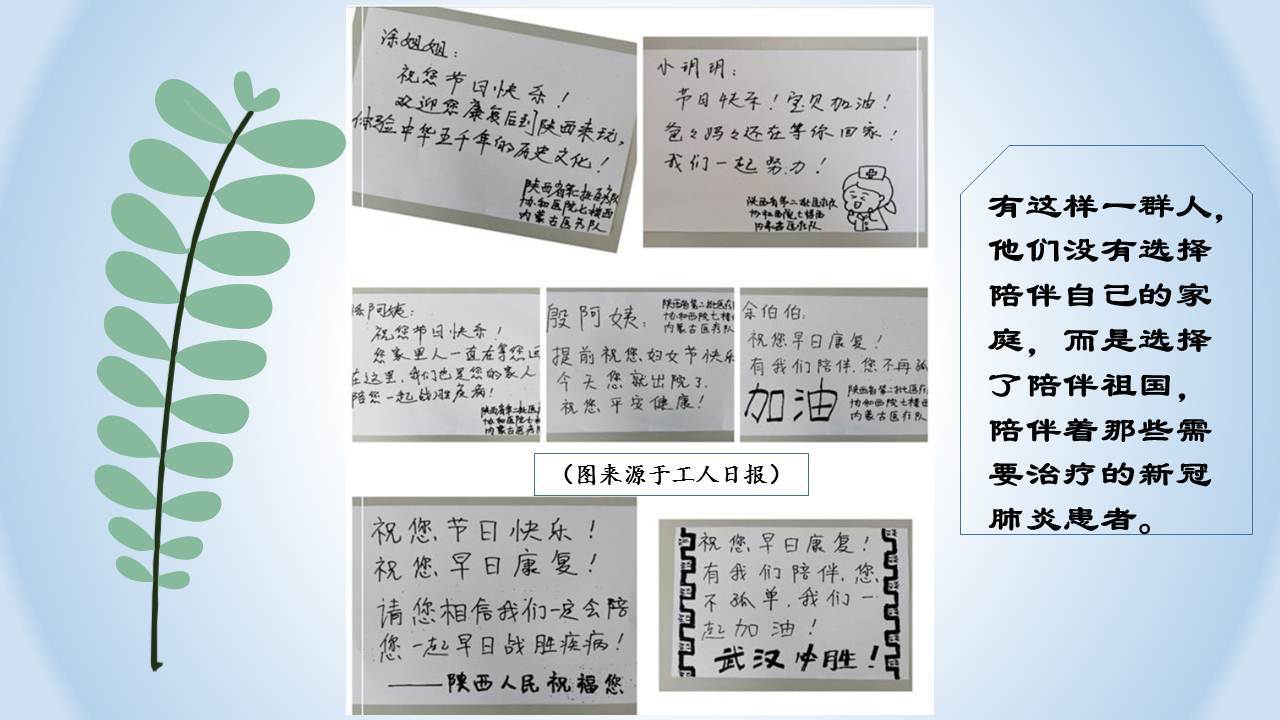 涂姐姐：
祝您节日快乐！
欢迎您康复后到陕西来玩，
体验中华五千年的历史文化！
陕西省第二批医疗队
协和医院七楼西
内蒙古医疗队
小玥玥：
节日快乐！宝贝加油！
爸々妈々还在等你回家！
我们一起努力！
陕西省第二批医疗队
协和西院七楼西
内蒙古医疗队
阿姨：
祝您节日快乐！
您家里人一直在等您回
在这里，我们也是您的家人
陪您一起战胜疾病！
陕西省第二批医疗
协和医院七楼
内蒙古医疗
殷阿姨：
陕西省第二批医疗
协和西院七楼西
内蒙古医疗队
提前祝您妇女节快乐
今天您就出院了，
祝您平安健康！
余伯伯：
祝您早日康复！
有我们陪伴，您不再孤
加油
陕西省第二批医疗
协和西院七楼西
内蒙古医疗队
（图来源于工人日报）
祝您节日快乐！
祝您早日康复！
请您相信我们一定会陪
您一起早日战胜疾病！
——陕西人民祝福您
祝您早日康复！
有我们陪伴，您
不孤单，我们一
起加油！
武汉必胜！
有这样一群人，
他们没有选择
陪伴自己的家
庭，而是选择
了陪伴祖国，
陪伴着那些需
要治疗的新冠
肺炎患者。